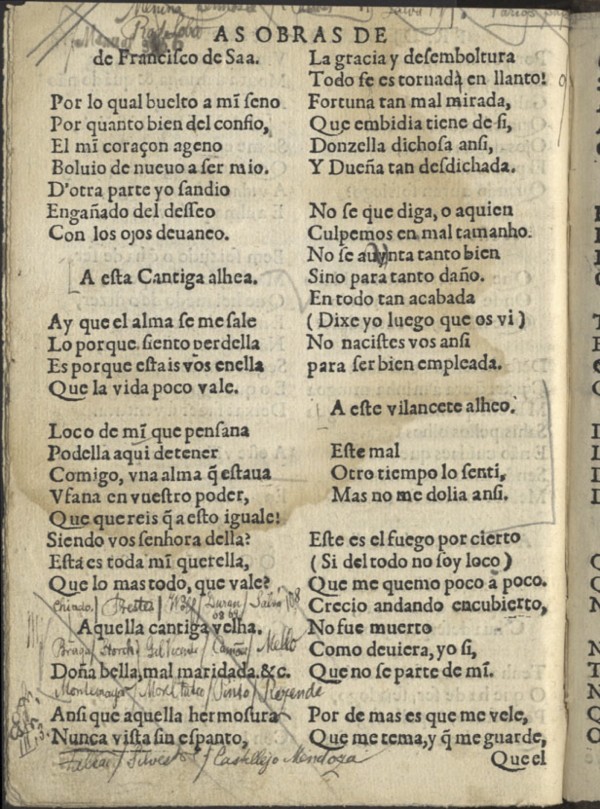 AS OBRAS DE
de Francisco de Saa.
Por lo qual buelto a mĩ seno
Por quanto bien del confio,
El mĩ coraçon ageno
Boluio de nueuo a ser mio.
D'otra parte yo sandio
Engañado del desseo
Con los ojos deuaneo.
A esta Cantiga alhea.
Ay que el alma se me sale
Lo porque siento perdella
Es porque estais vos enella
Que la vida poco vale.
Loco de mĩ que pensaua
Podella aqui detener
Comigo, vna alma q̃ estaua
Vfana en vuestro poder,
Que quereis q̃ a esto iguale!
Siendo vos senhora della?
Esta es toda mĩ querella,
Que lo mas todo, que vale?
Chiado / Prestes / Duran
Aquella cantiga velha.
Braga / Storck / Gil Vicente / Camões / Mello
Doña bella, mal maridada. &c.
Montemayor / / Pinto / Rezende
Ansi que aquella hermosura
Nunca vista sin espanto,
/ Silvestre / Castillejo Mendoza
La gracia y desemboltura
Todo se es tornadà en llanto!
Fortuna tan mal mirada,
Que embidia tiene de si,
Donzella dichosa ansi,
Y Dueña tan desdichada.
No se que diga, o aquien
Culpemos en mal tamanho.
No se ayunta tanto bien
Sino para tanto daño.
En todo tan acabada
( Dixe yo luego que os vi )
No nacistes vos ansi
para ser bien empleada.
A este vilancete alheo.
Este mal
Otro tiempo lo senti,
Mas no me dolia ansi.
Este es el fuego por cierto
( Si del todo no soy loco )
Que me quemo poco à poco.
Crecio andando encubierto,
No fue muerto
Como deuiera, yo si,
Que no se parte de mĩ.
Por de mas es que me vele,
Que me tema, y q̃ me guarde,
Que el